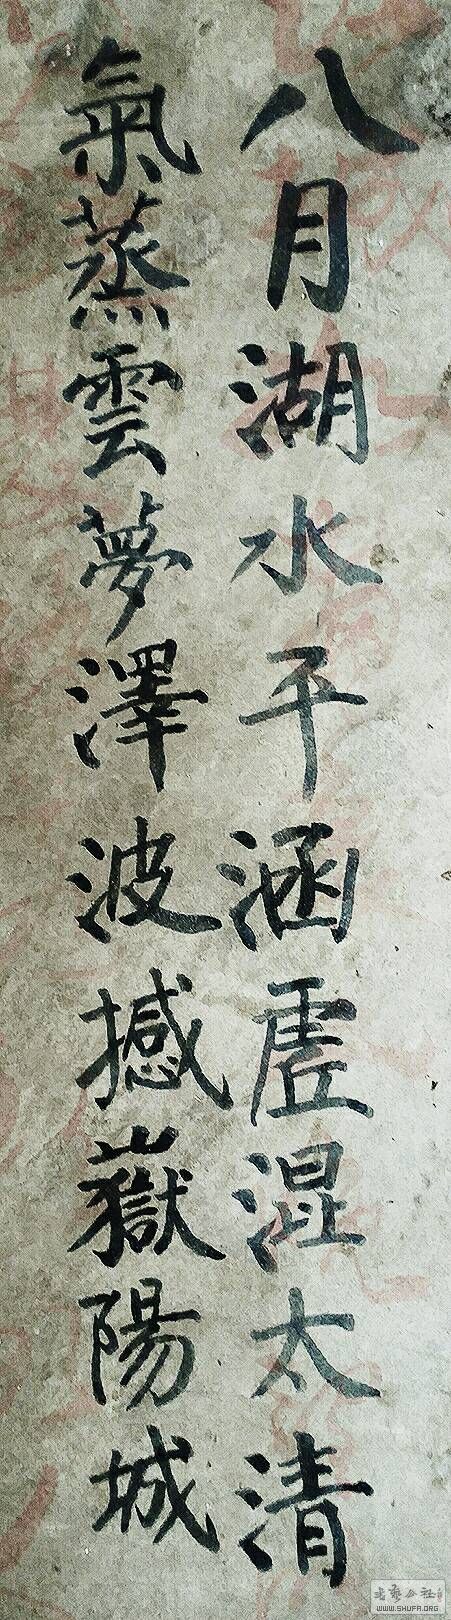 八月湖水平涵虛混太清
氣蒸雲夢澤波撼嶽陽城
WWW.SHUFA.ORG